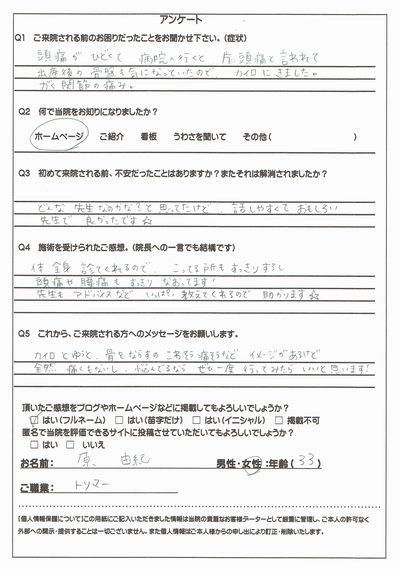 アンケート
Q1 ご来院される前のお困りだったことをお聞かせ下さい。(症状)
頭痛が ひどくて 病院へ行くと 片頭痛と言われて
出産後の骨盤も気になっていたので カイロにきました。
がく関節の痛み。
Q2 何で当院をお知りになりましたか?
ホームページ ご紹介 看板 うわさを聞いて その他( )
Q3 初めて来院される前、不安だったことはありますか?またそれは解消されましたか?
どんな 先生なのかな?と 思ってたけど、話しやすくて おもしろい
先生で 良かったです☆
Q4 施術を受けられたご感想。(院長への一言でも結構です)
体 全身 診てくれるので、こってる所も すっきりするし
頭痛や腰痛も すっきり なおってます!
先生も アドバイスなど いっぱい 教えてくれるので 助かります☆
Q5 これから、ご来院される方へのメッセージをお願いします。
カイロ とゆうと、骨をならすの こわそう 痛そうなど イメージがあるけど
全然 痛くもないし、悩んでるなら ぜひ一度 行ってみたら いいと思います!
頂いたご感想をブログやホームページなどに掲載してもよろしいでしょうか?
☑はい(フルネーム) □はい(苗字だけ) □はい(イニシャル) □掲載不可
匿名で当院を評価できるサイトに投稿させていただいてもよろしいでしょうか?
□はい □いいえ
お名前: 原 由紀 男性・女性:年齢(33)
ご職業: トリマー
[個人情報保護について]この用紙にご記入いただきました情報は当院の貴重なお客様データーとして厳重に管理し、ご本人の許可なく
外部への開示・提供することは一切ございません。また個人情報はご本人様からの申し出により訂正・削除いたします。